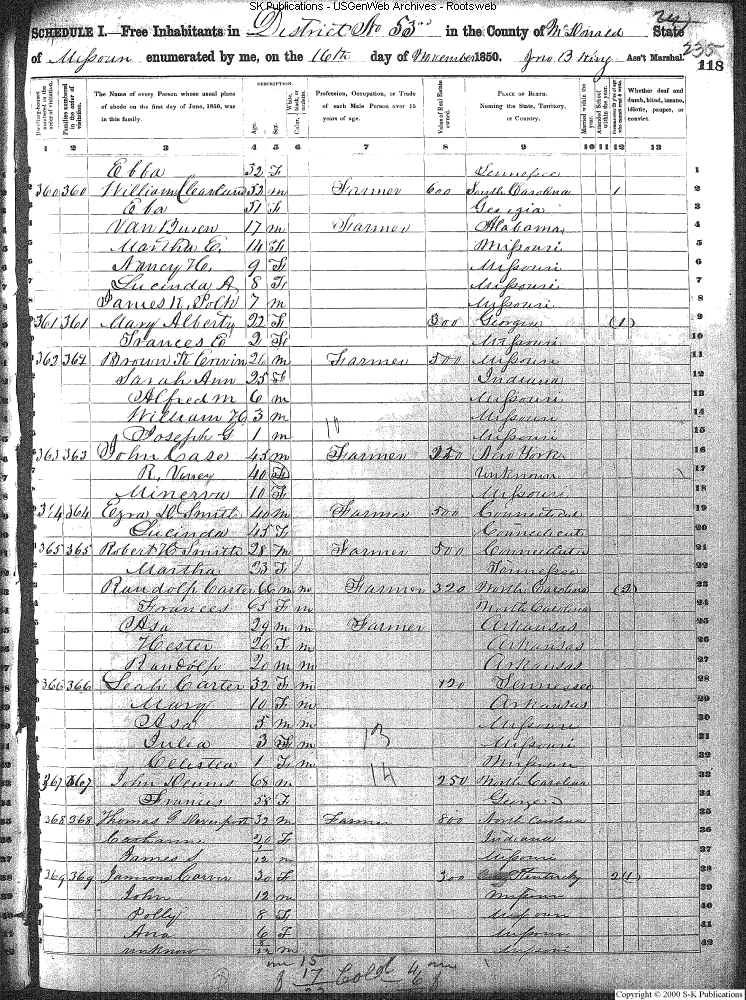 SK Publications - USGenWeb Archives - Rootsweb
SCHEDULE I.—Free Inhabitants in District No 53 in the County of McDonald State
of Missouri enumerated by me, on the 16th day of November 1850. Jno B King Ass't Marshal. 235
118
Dwelling-houses numbered in the order of visitation.
Families numbered in the order of visitation.
The Name of every Person whose usual place of abode on the first day of June, 1850, was in this family.
DESCRIPTION.
Age.
Sex.
White, black, or mulatto.
Color
Profession, Occupation, or Trade of each Male Person over 15 years of age.
Value of Real Estate owned.
PLACE OF BIRTH. Naming the State, Territory, or Country.
Married within the year.
Attended School within the year.
Persons over 20 y'rs of age who cannot read & write.
Whether deaf and dumb, blind, insane, idiotic, pauper, or convict.
1 2 3 4 5 6 7 8 9 10 11 12 13
Ebba 32 F Tennessee 1
360 360 William Cleavland 52 m Farmer 600 South Carolina 1 2
Eba 51 F Georgia 3
Van Buren 17 m Farmer Alabama 4
Martha E. 14 F Missouri 5
Nancy H. 9 F Missouri 6
Lucinda A 8 F Missouri 7
James K. Polk 7 m Missouri 8
361 361 Mary Alberty 22 F 300 Georgia (1) 9
Frances E 2 F Missouri 10
362 362 Brown K Corwin 26 m Farmer 500 Missouri 11
Sarah Ann 25 F Indiana 12
Alfred M 6 m Missouri 13
William H 3 m Missouri 14
Joseph G 1 m 10 Missouri 15
363 363 John Case 45 m Farmer New York 16
R. Varney 40 F Unknown 17
Minerva 10 F Missouri 18
364 364 Ezra D Smith 40 m Farmer 500 Connecticut 19
Lucinda 45 F Connecticut 20
365 365 Robert H Smith 28 m Farmer 500 Connecticut 21
Martha 23 F Tennessee 22
Randolph Carter 66 m m Farmer 320 North Carolina (2) 23
Frances 65 F m North Carolina 24
Asa 29 m m Farmer Arkansas 25
Hester 26 F m Arkansas 26
Randolph 20 m m Arkansas 27
366 366 Leah Carter 32 F m 120 Tennessee 28
Mary 10 F m Arkansas 29
Asa 5 m m Missouri 30
Julia 3 F m 13 Missouri 31
Celestia 1 F m 14 Missouri 32
367 367 John Dennis 68 m 250 North Carolina 33
Frances 58 F Georgia 34
368 368 Thomas G Devenport 32 m Farmer 800 North Carolina 35
20 F Indiana 36
James S 12 m Missouri 37
369 369 Carver 30 F 300 Kentucky 38
John 12 m Missouri 39
Polly 8 F Missouri 40
6 F Missouri 41
unknown m Missouri 42
m 15
f 17 Cold 4 m
6 f
Copyright © 2000 S-K Publications